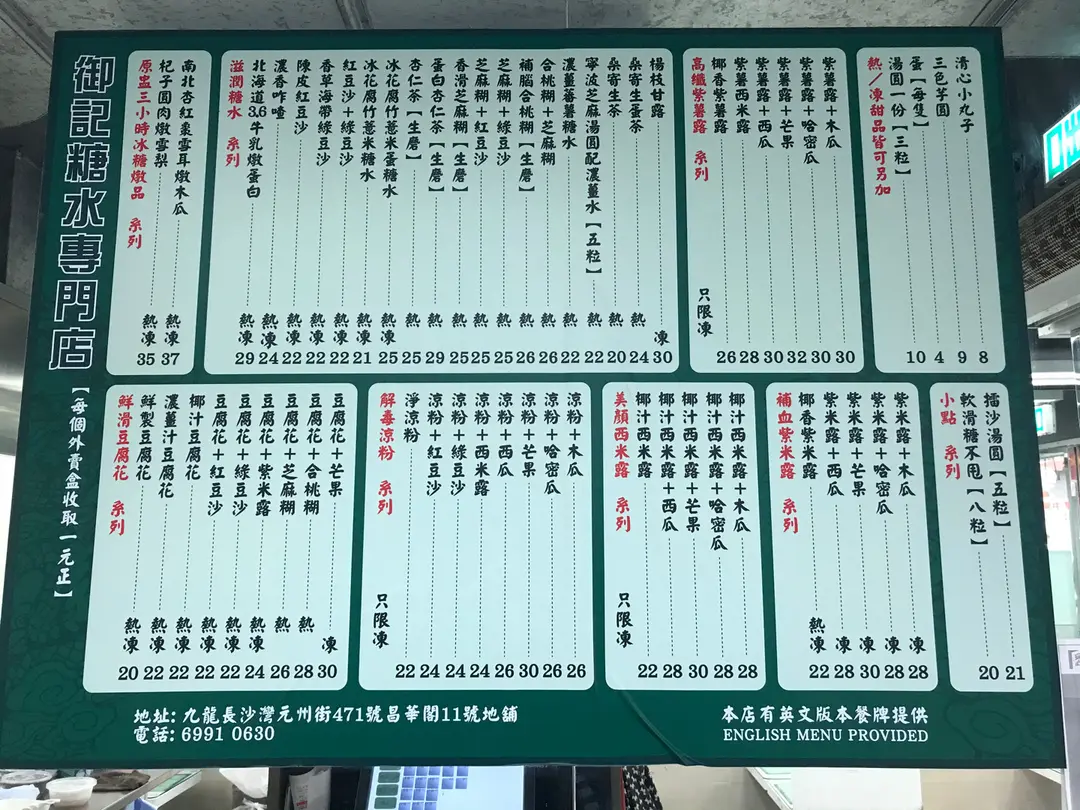 御記糖水專門店
【每個外賣盒收取一元正】
原盅三小時冰糖燉品 系列
杞子圓肉燉雪梨 熱凍 35
南北杏紅棗雪耳燉木瓜 熱凍 37
滋潤糖水 系列
北海道3.6牛乳燉蛋白 熱凍 29
濃香咋喳 熱凍 24
陳皮紅豆沙 熱凍 22
香草海帶綠豆沙 熱凍 22
紅豆沙+綠豆沙 熱凍 22
冰花腐竹薏米糖水 熱凍 21
冰花腐竹薏米蛋糖水 熱凍 25
杏仁茶【生磨】 熱 25
蛋白杏仁茶【生磨】 熱 29
香滑芝麻糊【生磨】 熱 25
芝麻糊+紅豆沙 熱 25
芝麻糊+綠豆沙 熱 25
補腦合桃糊【生磨】 熱 26
合桃糊+芝麻糊 熱 26
濃薑蕃薯糖水 熱 22
寧波芝麻湯圓配濃薑水【五粒】 熱 22
桑寄生茶 熱 20
桑寄生蛋茶 熱 24
楊枝甘露 凍 30
高纖紫薯露 系列
只限凍
椰香紫薯露 26
紫薯西米露 28
紫薯露+西瓜 30
紫薯露+芒果 32
紫薯露+哈密瓜 30
紫薯露+木瓜 30
熱/凍甜品皆可另加
湯圓一份【三粒】 10
蛋【每隻】 4
三色芋圓 9
清心小丸子 8
鮮滑豆腐花 系列
鮮製豆腐花 熱凍 20
濃薑汁豆腐花 熱凍 22
椰汁豆腐花 熱凍 22
豆腐花+紅豆沙 熱凍 22
豆腐花+綠豆沙 熱凍 22
豆腐花+紫米露 熱凍 24
豆腐花+芝麻糊 熱 26
豆腐花+合桃糊 熱 28
豆腐花+芒果 凍 30
解毒涼粉 系列
只限凍
淨涼粉 22
涼粉+紅豆沙 24
涼粉+綠豆沙 24
涼粉+西米露 24
涼粉+西瓜 26
涼粉+芒果 30
涼粉+哈密瓜 26
涼粉+木瓜 26
美顏西米露 系列
只限凍
椰汁西米露 22
椰汁西米露+西瓜 28
椰汁西米露+芒果 30
椰汁西米露+哈密瓜 28
椰汁西米露+木瓜 28
補血紫米露 系列
椰香紫米露 熱凍 22
紫米露+西瓜 凍 28
紫米露+芒果 凍 30
紫米露+哈密瓜 凍 28
紫米露+木瓜 凍 28
小點 系列
軟滑糖不甩【八粒】 20
擂沙湯圓【五粒】 21
地址: 九龍長沙灣元州街471號昌華閣11號地舖
電話: 6991 0630
本店有英文版本餐牌提供
ENGLISH MENU PROVIDED